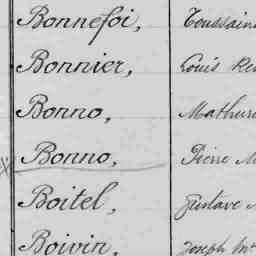 Bonnefoi, Toussain
Bonnier, Louis Re
Bonno, Mathur
Bonno, Pierre M
Boitel, Gustave
Boivin, Joseph M